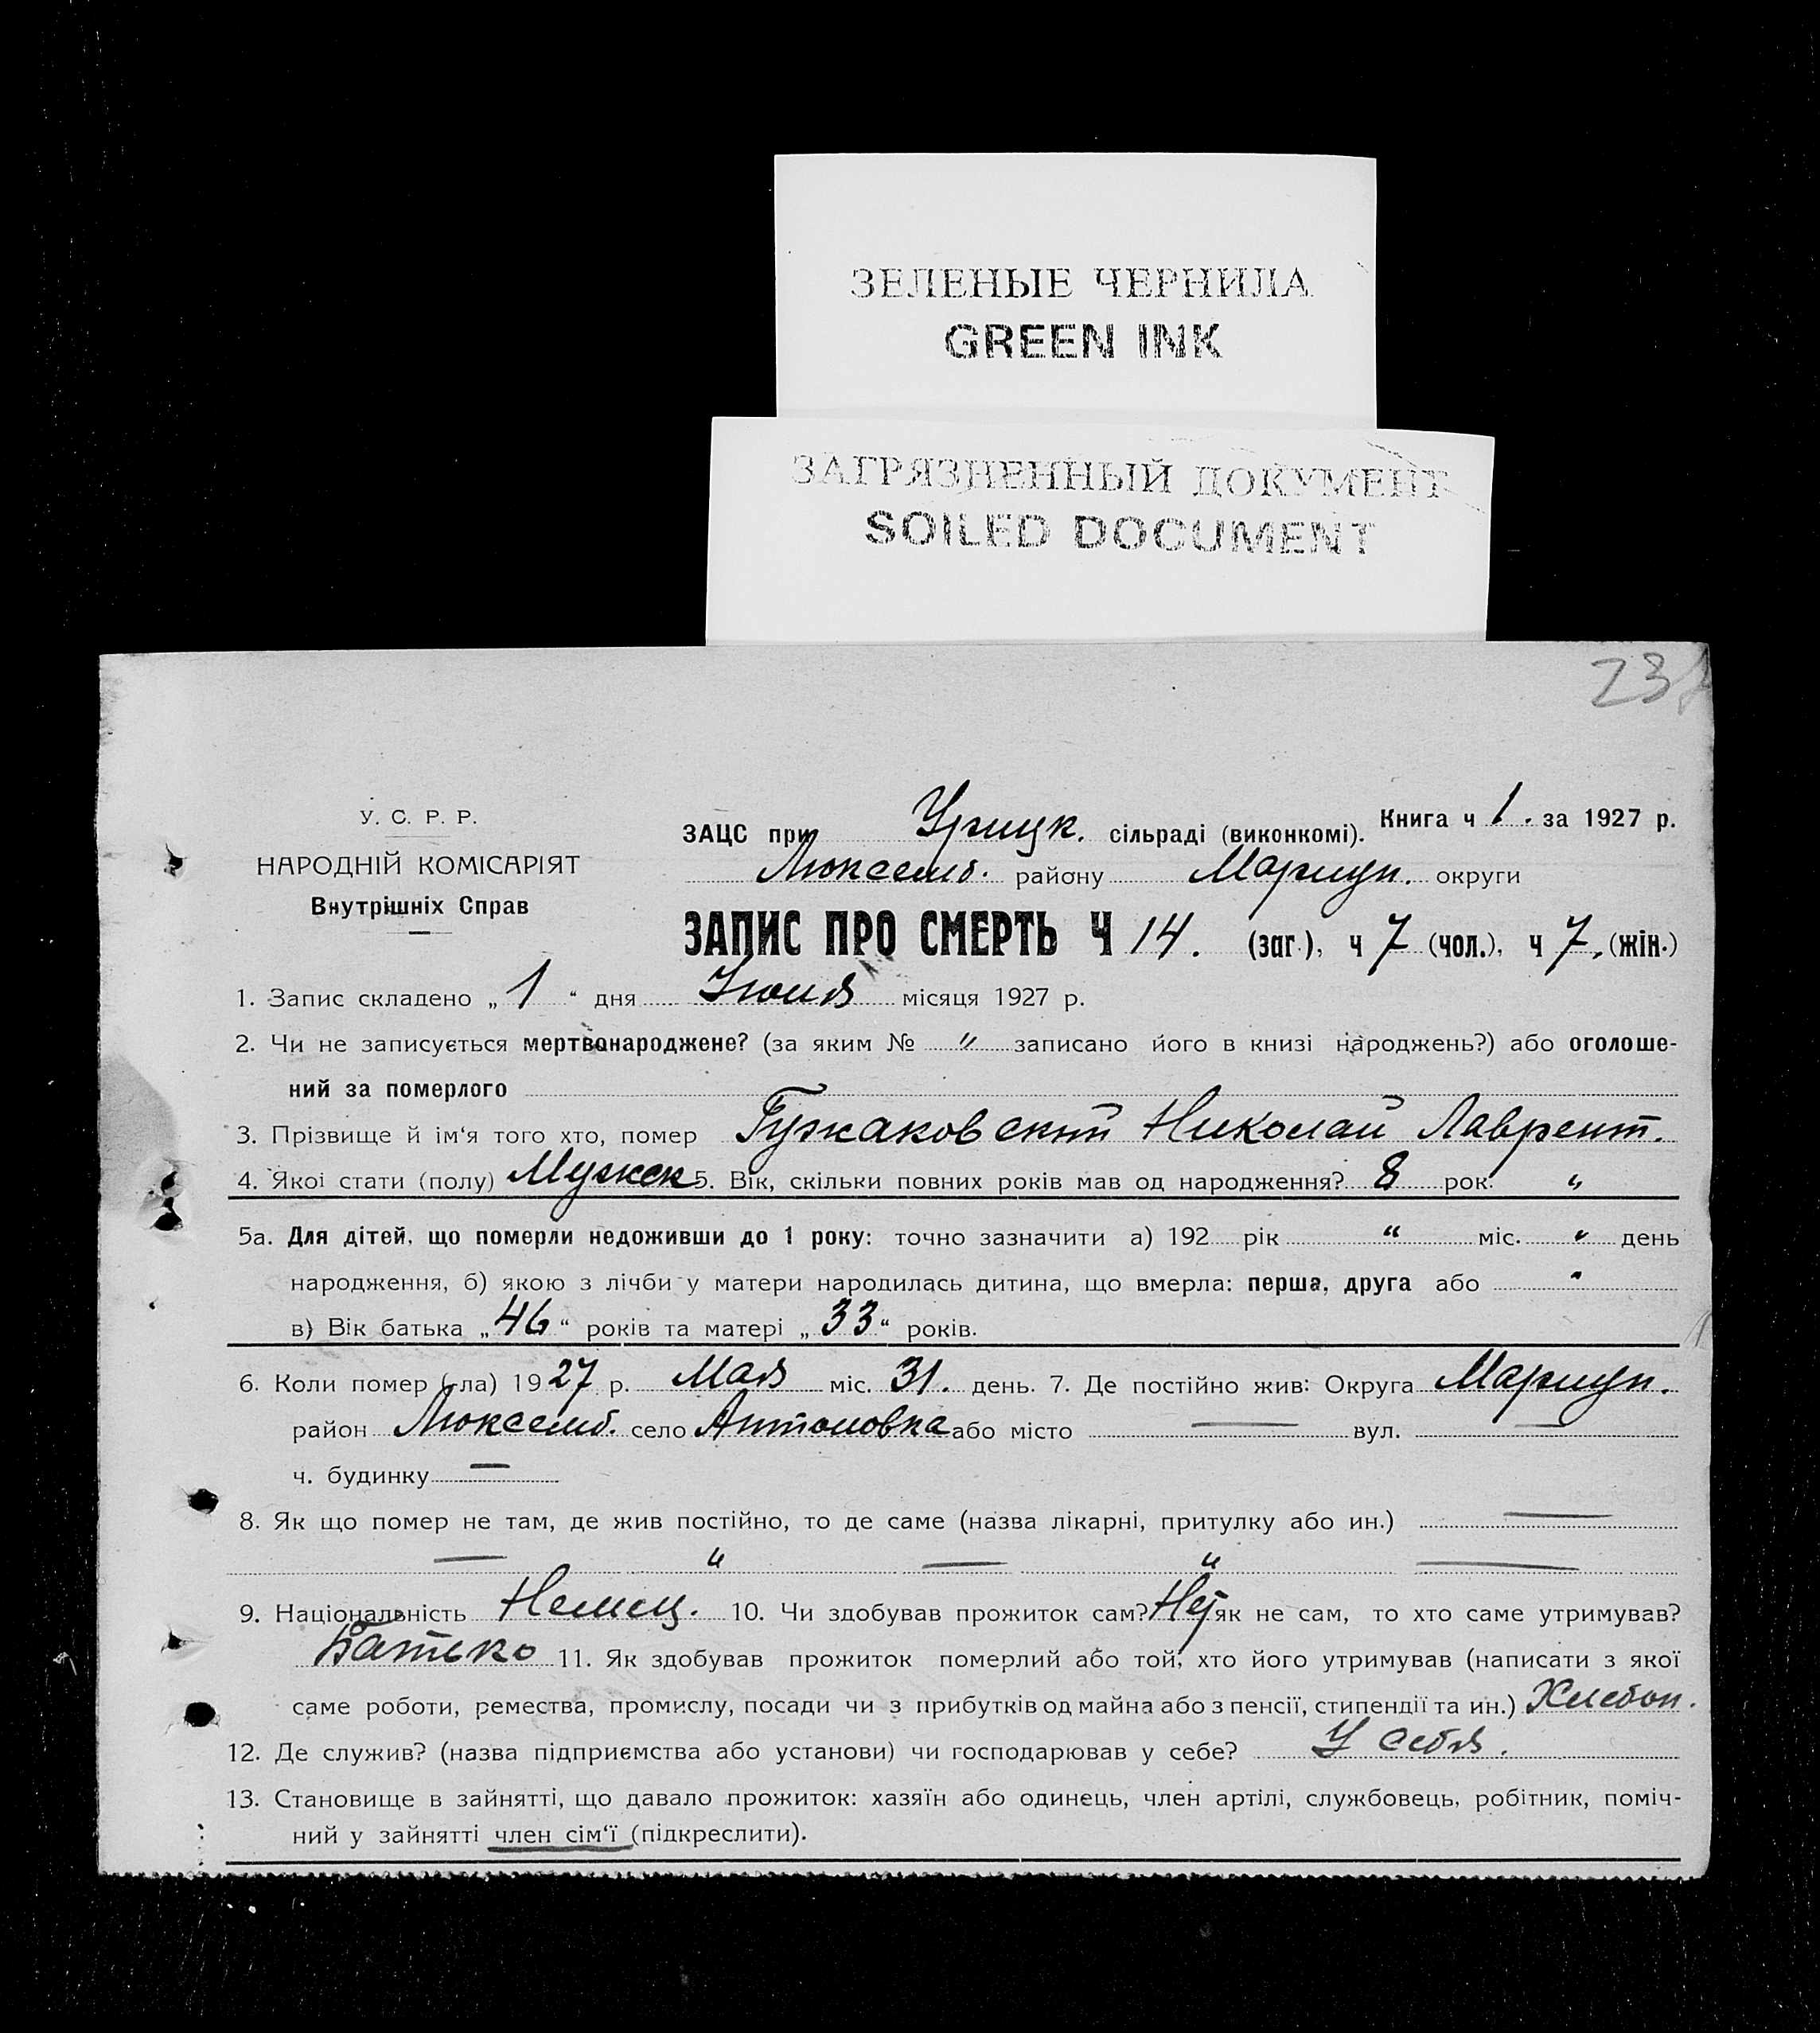 ЗЕЛЕНЫЕ ЧЕРНИЛА
GREEN INK
ЗАГРЯЗНЕННЫЙ ДОКУМЕНТ
SOILED DOCUMENT
23
У. С. Р. Р.
НАРОДНІЙ КОМІСАРІЯТ
Внутрішніх Справ
ЗАЦС при Урицк. сільраді (виконкомі). Книга ч 1. за 1927 р.
Люксемб. району Мариуп. округи
ЗАПИС ПРО СМЕРТЬ Ч 14. (заг.), ч 7 (чол.), ч 7. (жін.)
1. Запис складено „ 1 “ дня Июня місяця 1927 р.
2. Чи не записується мертвонароджене? (за яким № " записано його в книзі народжень?) або оголоше-
ний за померлого
3. Прізвище й ім‘я того хто, помер Гужаковский Николай Лаврент.
4. Якої стати (полу) Мужск 5. Вік, скільки повних років мав од народження? 8 рок. "
5а. Для дітей, що померли недоживши до 1 року: точно зазначити а) 192 рік " міс. " день
народження, б) якою з лічби у матери народилась дитина, що вмерла: перша, друга або "
в) Вік батька „ 46 “ років та матері „ 33 “ років.
6. Коли помер (-ла) 1927 р. Мая міс. 31. день. 7. Де постійно жив: Округа Мариуп.
район Люксемб. село Антоновка або місто — вул. —
ч. будинку —
8. Як що помер не там, де жив постійно, то де саме (назва лікарні, притулку або ин.) —
— " — " —
9. Національність Немец. 10. Чи здобував прожиток сам? Нет як не сам, то хто саме утримував?
Батько 11. Як здобував прожиток померлий або той, хто його утримував (написати з якої
саме роботи, ремества, промислу, посади чи з прибутків од майна або з пенсії, стипендії та ин.) Хлебоп.
12. Де служив? (назва підприємства або установи) чи господарював у себе? У себя.
13. Становище в зайнятті, що давало прожиток: хазяїн або одинець, член артілі, службовець, робітник, поміч-
ний у зайнятті член сім‘ї (підкреслити).